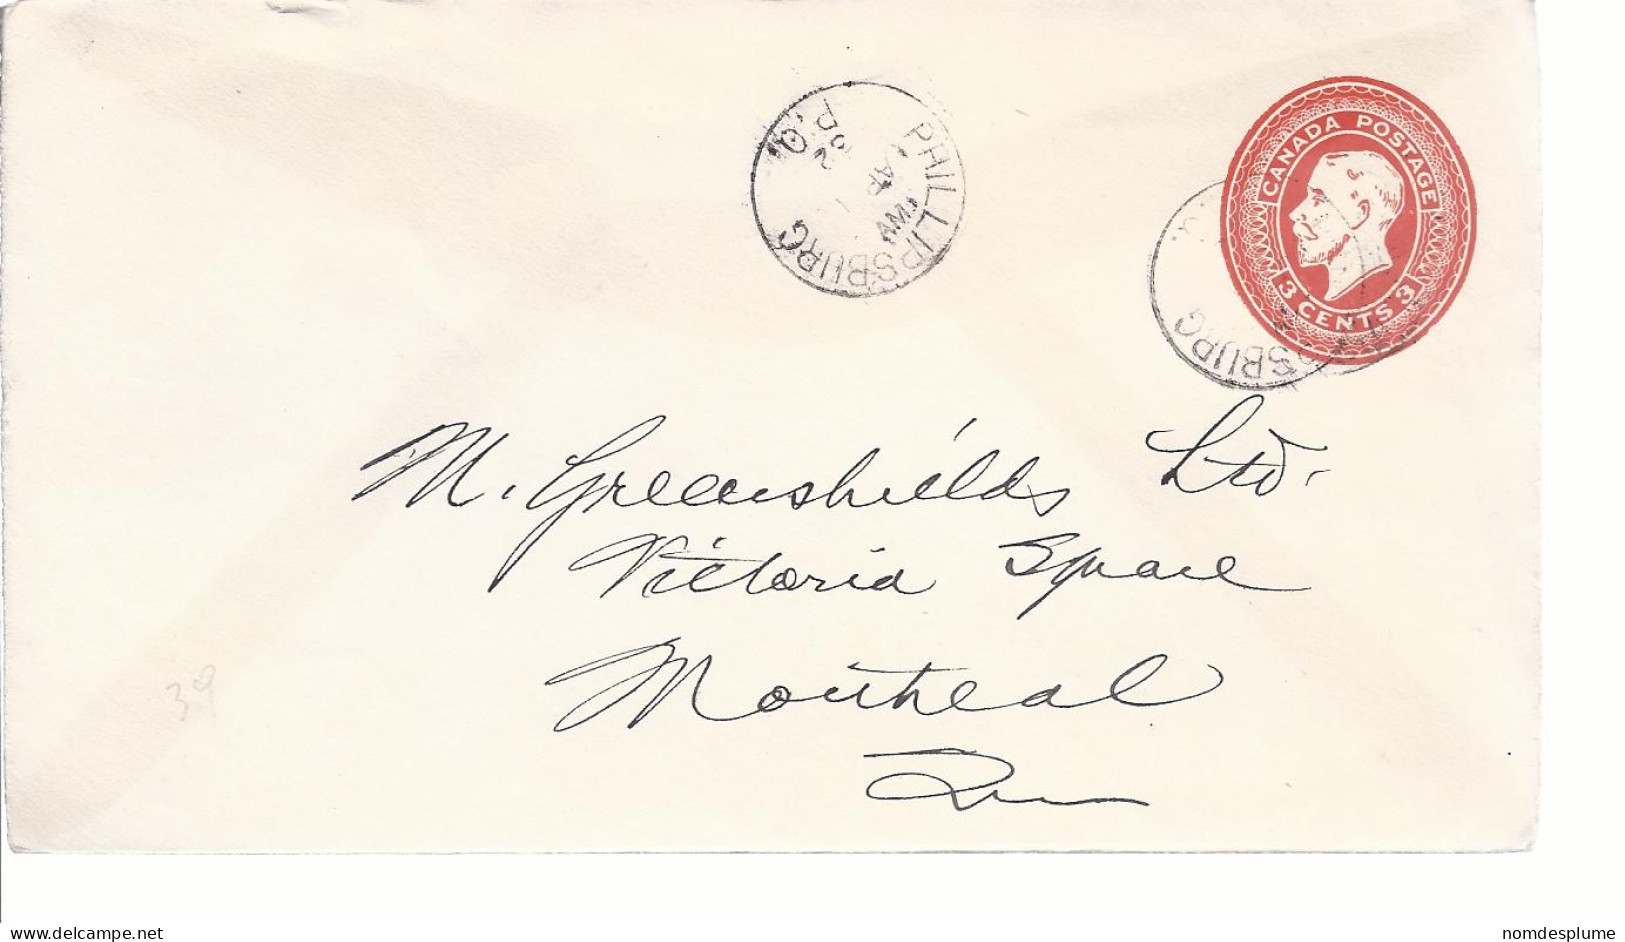 PHILLIPSBURG
AM
32
P.Q.
CANADA POSTAGE
3 CENTS 3
SBURG
M. Greenshields Ltd.
Victoria Square
Montreal
Que
39
www.delcampe.net
nomdesplume